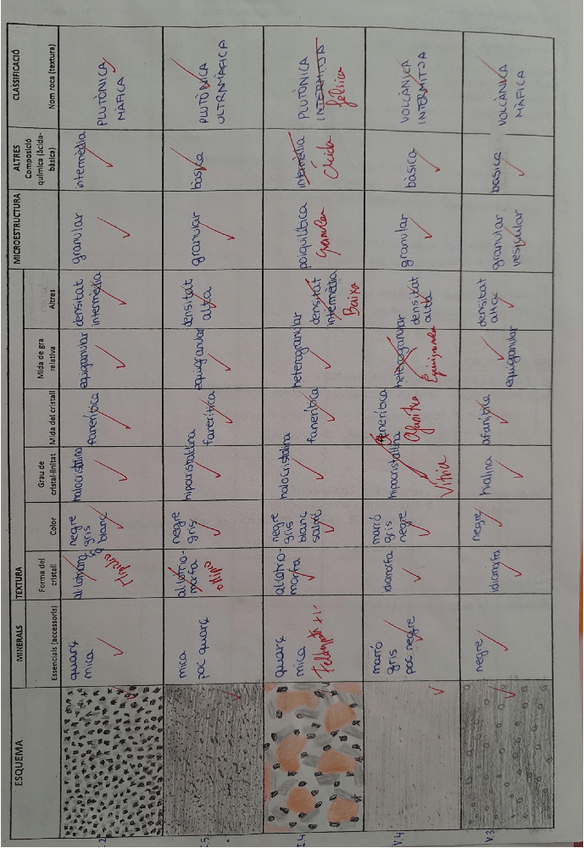 ESQUEMA
MINERALS
Essencials (accessoris)
TEXTURA
Forma del cristall
Color
Grau de cristal·linitat
Mida del cristall
Mida de gra relativa
Altres
MICROESTRUCTURA
ALTRES
Composició química (àcida-bàsica)
CLASSIFICACIÓ
Nom roca (textura)
quarç
mica
negre
gris
blanc
holocristal·lina
fanerítica
equigranular
densitat
intermèdia
granular
intermèdia
PLUTÒNICA
MÀFICA
I.5
mica
poc quarç
al·lotrio-
morfa
negre
gris
hipocristal·lina
fanerítica
equigranular
densitat
alta
granular
bàsica
PLUTÒNICA
ULTRAMÀFICA
I.4
quarç
mica
al·lotrio-
morfa
negre
gris
blanc
salmó
holocristal·lina
fanerítica
heterogranular
densitat
intermèdia
Baixa
poiquilítica
Granular
intermèdia
Àcida
PLUTÒNICA
INTERMITJA
felsica
V.4
marró
gris
poc negre
idiomorfa
marró
gris
negre
hipocristal·lina
Vítria
fanerítica
Afanítica
heterogranular
Equigranular
densitat
alta
granular
bàsica
VOLCÀNICA
INTERMITJA
V.3
negre
idiomorfa
negre
hialina
afanítica
equigranular
densitat
alta
granular
vesicular
bàsica
VOLCÀNICA
MÀFICA